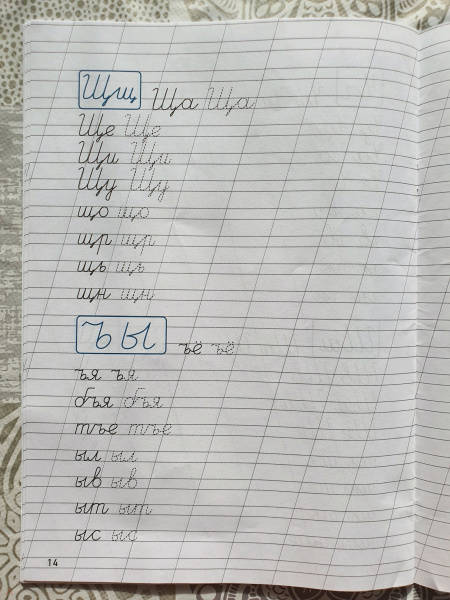 Щщ Ща Ща
Ще Ще
Щи Щи
Щу Щу
що що
щр щр
щь щь
щн щн
Ъ Ы ъё ъё
ъя ъя
бъя бъя
тъе тъе
ыл ыл
ыв ыв
ыт ыт
ыс ыс
14